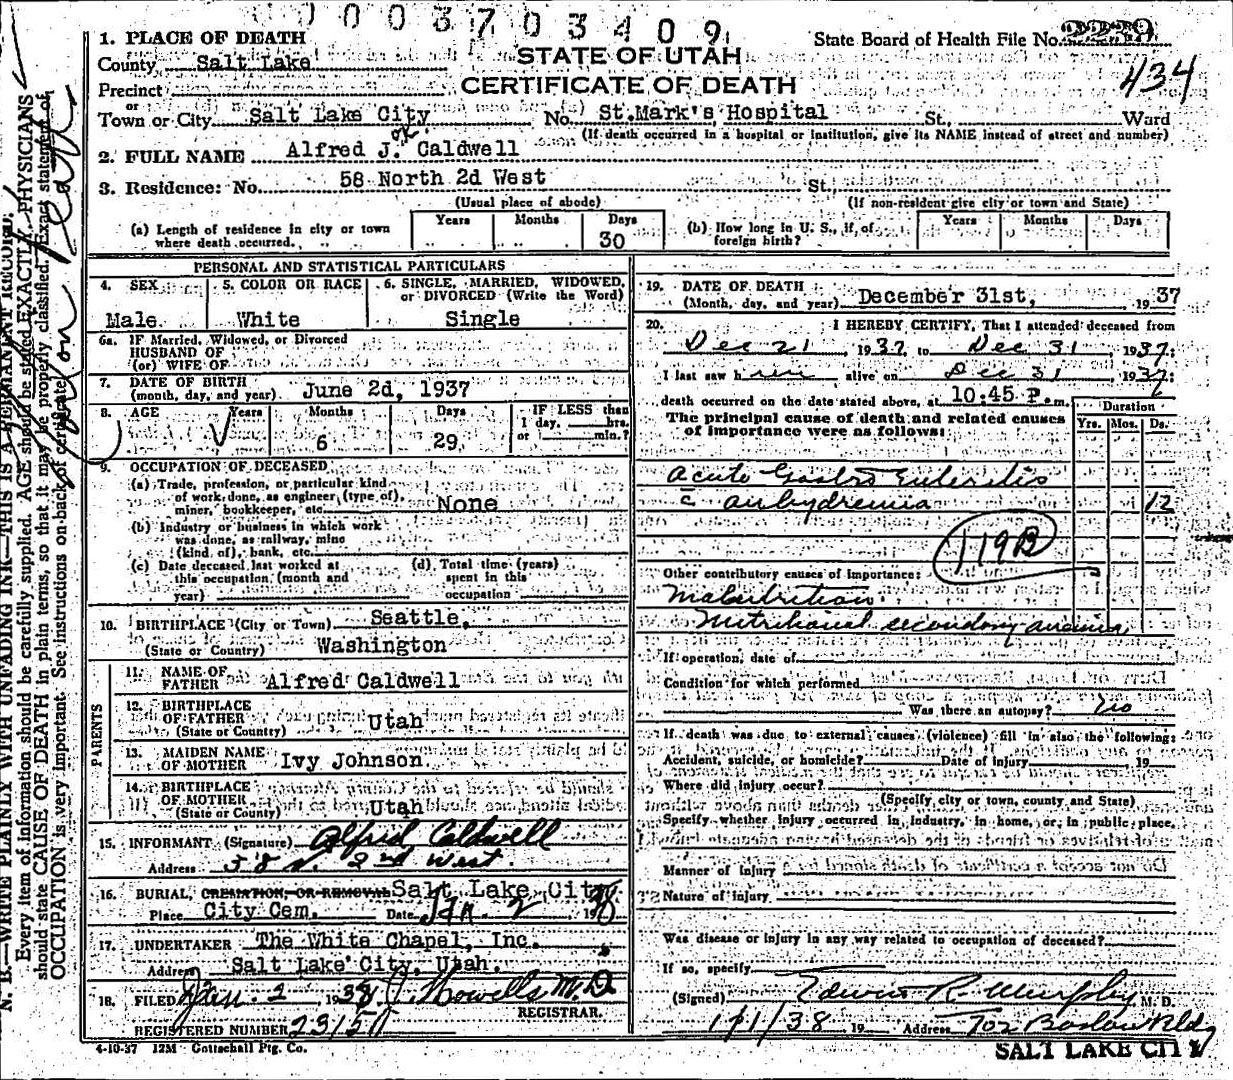 0003703409
1. PLACE OF DEATH
State Board of Health File No. 2239
County Salt Lake
STATE OF UTAH
434
Precinct
CERTIFICATE OF DEATH
or
Town or City Salt Lake City No. St.Mark's Hospital St., Ward
(If death occurred in a hospital or institution, give its NAME instead of street and number)
ok
2. FULL NAME Alfred J. Caldwell
3. Residence: No. 58 North 2d West St.,
(Usual place of abode) (If non-resident give city or town and State)
Years Months Days Years Months Days
(a) Length of residence in city or town where death occurred. 30
(b) How long in U. S., if of foreign birth?
PERSONAL AND STATISTICAL PARTICULARS
4. SEX 5. COLOR OR RACE 6. SINGLE, MARRIED, WIDOWED, or DIVORCED (Write the Word)
Male White Single
6a. IF Married, Widowed, or Divorced
HUSBAND OF
(or) WIFE OF
7. DATE OF BIRTH
(month, day, and year) June 2d, 1937
8. AGE Years Months Days IF LESS than
1 day, hrs.
6 29 or min.?
9. OCCUPATION OF DECEASED
(a) Trade, profession, or particular kind
of work done, as engineer (type of),
miner, bookkeeper, etc. None
(b) Industry or business in which work
was done, as railway, mine
(kind of), bank, etc.
(c) Date deceased last worked at
this occupation (month and
year)
(d) Total time (years)
spent in this
occupation
10. BIRTHPLACE (City or Town) Seattle,
(State or Country) Washington
PARENTS
11. NAME OF
FATHER Alfred Caldwell
12. BIRTHPLACE
OF FATHER Utah
(State or Country)
13. MAIDEN NAME
OF MOTHER Ivy Johnson
14. BIRTHPLACE
OF MOTHER Utah
(State or Country)
15. INFORMANT (Signature) Alfred Caldwell
Address 58 N. 2nd West.
16. BURIAL, CREMATION, OR REMOVAL Salt Lake City
Place City Cem. Date Jan. 2 1938
17. UNDERTAKER The White Chapel, Inc.
Address Salt Lake City, Utah.
18. FILED Jan. 2 1938 Howells M.D.
REGISTRAR.
REGISTERED NUMBER 23150
4-10-37 12M Gottschall Ptg. Co.
19. DATE OF DEATH
(Month, day, and year) December 31st, 1937
20. I HEREBY CERTIFY, That I attended deceased from
Dec 21, 1937, to Dec 31 1937:
I last saw him alive on Dec 31 1937:
death occurred on the date stated above, at 10:45 P.m.
The principal cause of death and related causes
of importance were as follows:
Duration
Yrs. Mos. Ds.
Acute Gastro Enteritis
c̄ anhydremia 12
119B
Other contributory causes of importance:
Malnutrition.
Nutritional secondary anemia
If operation, date of
Condition for which performed
Was there an autopsy? No
If death was due to external causes (violence) fill in also the following:
Accident, suicide, or homicide? Date of injury 19
Where did injury occur?
(Specify city or town, county and State)
Specify whether injury occurred in industry, in home, or in public place.
Manner of injury
Nature of injury
Was disease or injury in any way related to occupation of deceased?
If so, specify
(Signed) Edwin R. Murphy M. D.
1/1/38 19 Address 702 Boston Bldg
SALT LAKE CITY
N. B.—WRITE PLAINLY WITH UNFADING INK—THIS IS A PERMANENT RECORD.
Every item of information should be carefully supplied. AGE should be stated EXACTLY. PHYSICIANS
should state CAUSE OF DEATH in plain terms, so that it may be properly classified. Exact statement of
OCCUPATION is very important. See instructions on back of certificate.